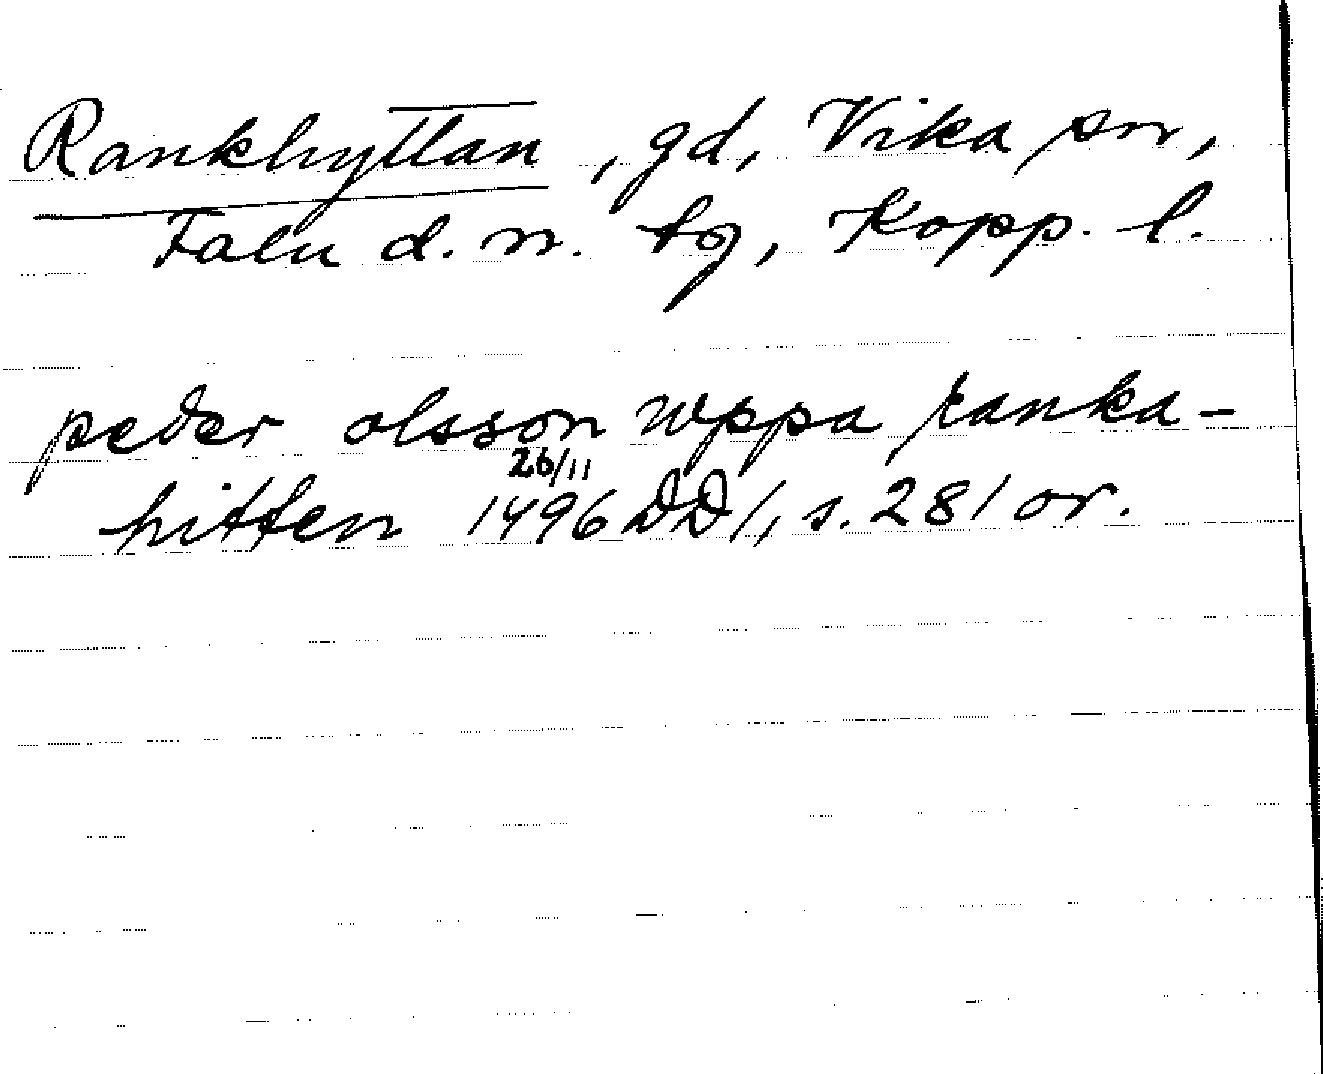 Rankhyttan, gd, Vika sn,
Falu d. n. tg, Kopp. l.
peder olsson wppa ranka-
hitten 1496 26/11 DD 1, s. 281 or.